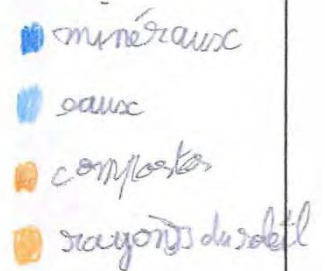 minéraux
eaux
compostes
rayons du soleil